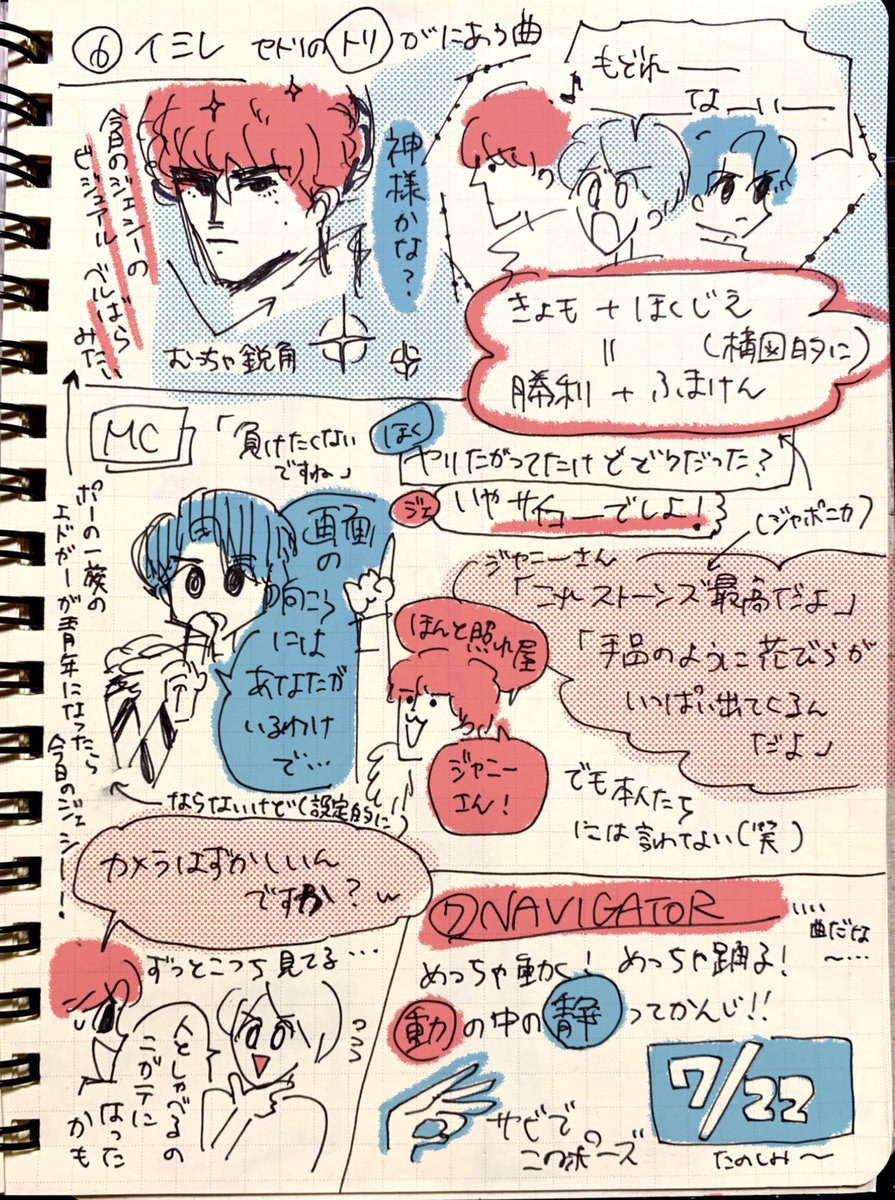 ⑥イミレ セトリのトリがにあう曲
今日のジェシーの
ビジュアル ベルばら
みたい
神様かな?
むっちゃ鋭角
♪もどれ——
てよーい—
きょも+ほくじえ
=(構図的に)
勝利+ふまけん
MC
「負けたくない
ですね」
ほく
ヤリたがってたけどどうだった?
ジェ
いやサイコーでしょ!
(ジャポニカ)
画面
の
向こう
には
あなたが
いるわけ
で…
ジャニーさん
「これストーンズ最高だよ」
「手品のように花びらが
いっぱい出てくるん
だよ」
ほんと照れ屋
ジャニー
さん!
でも本人たち
には言わてない(笑)
ポーの一族の
エドガーが青年になったら
今日のジェシー!
ならないけど(設定的に)
カメラはずかしいん
ですか?w
ずっとこっち見てる…
人としゃべるの
こがテに
なった
かも
⑦NAVIGATOR
…曲だな
〜…
めっちゃ動く!めっちゃ踊る!
動の中の静ってかんじ!!
サビで
このポーズ
7/22
たのしみ〜